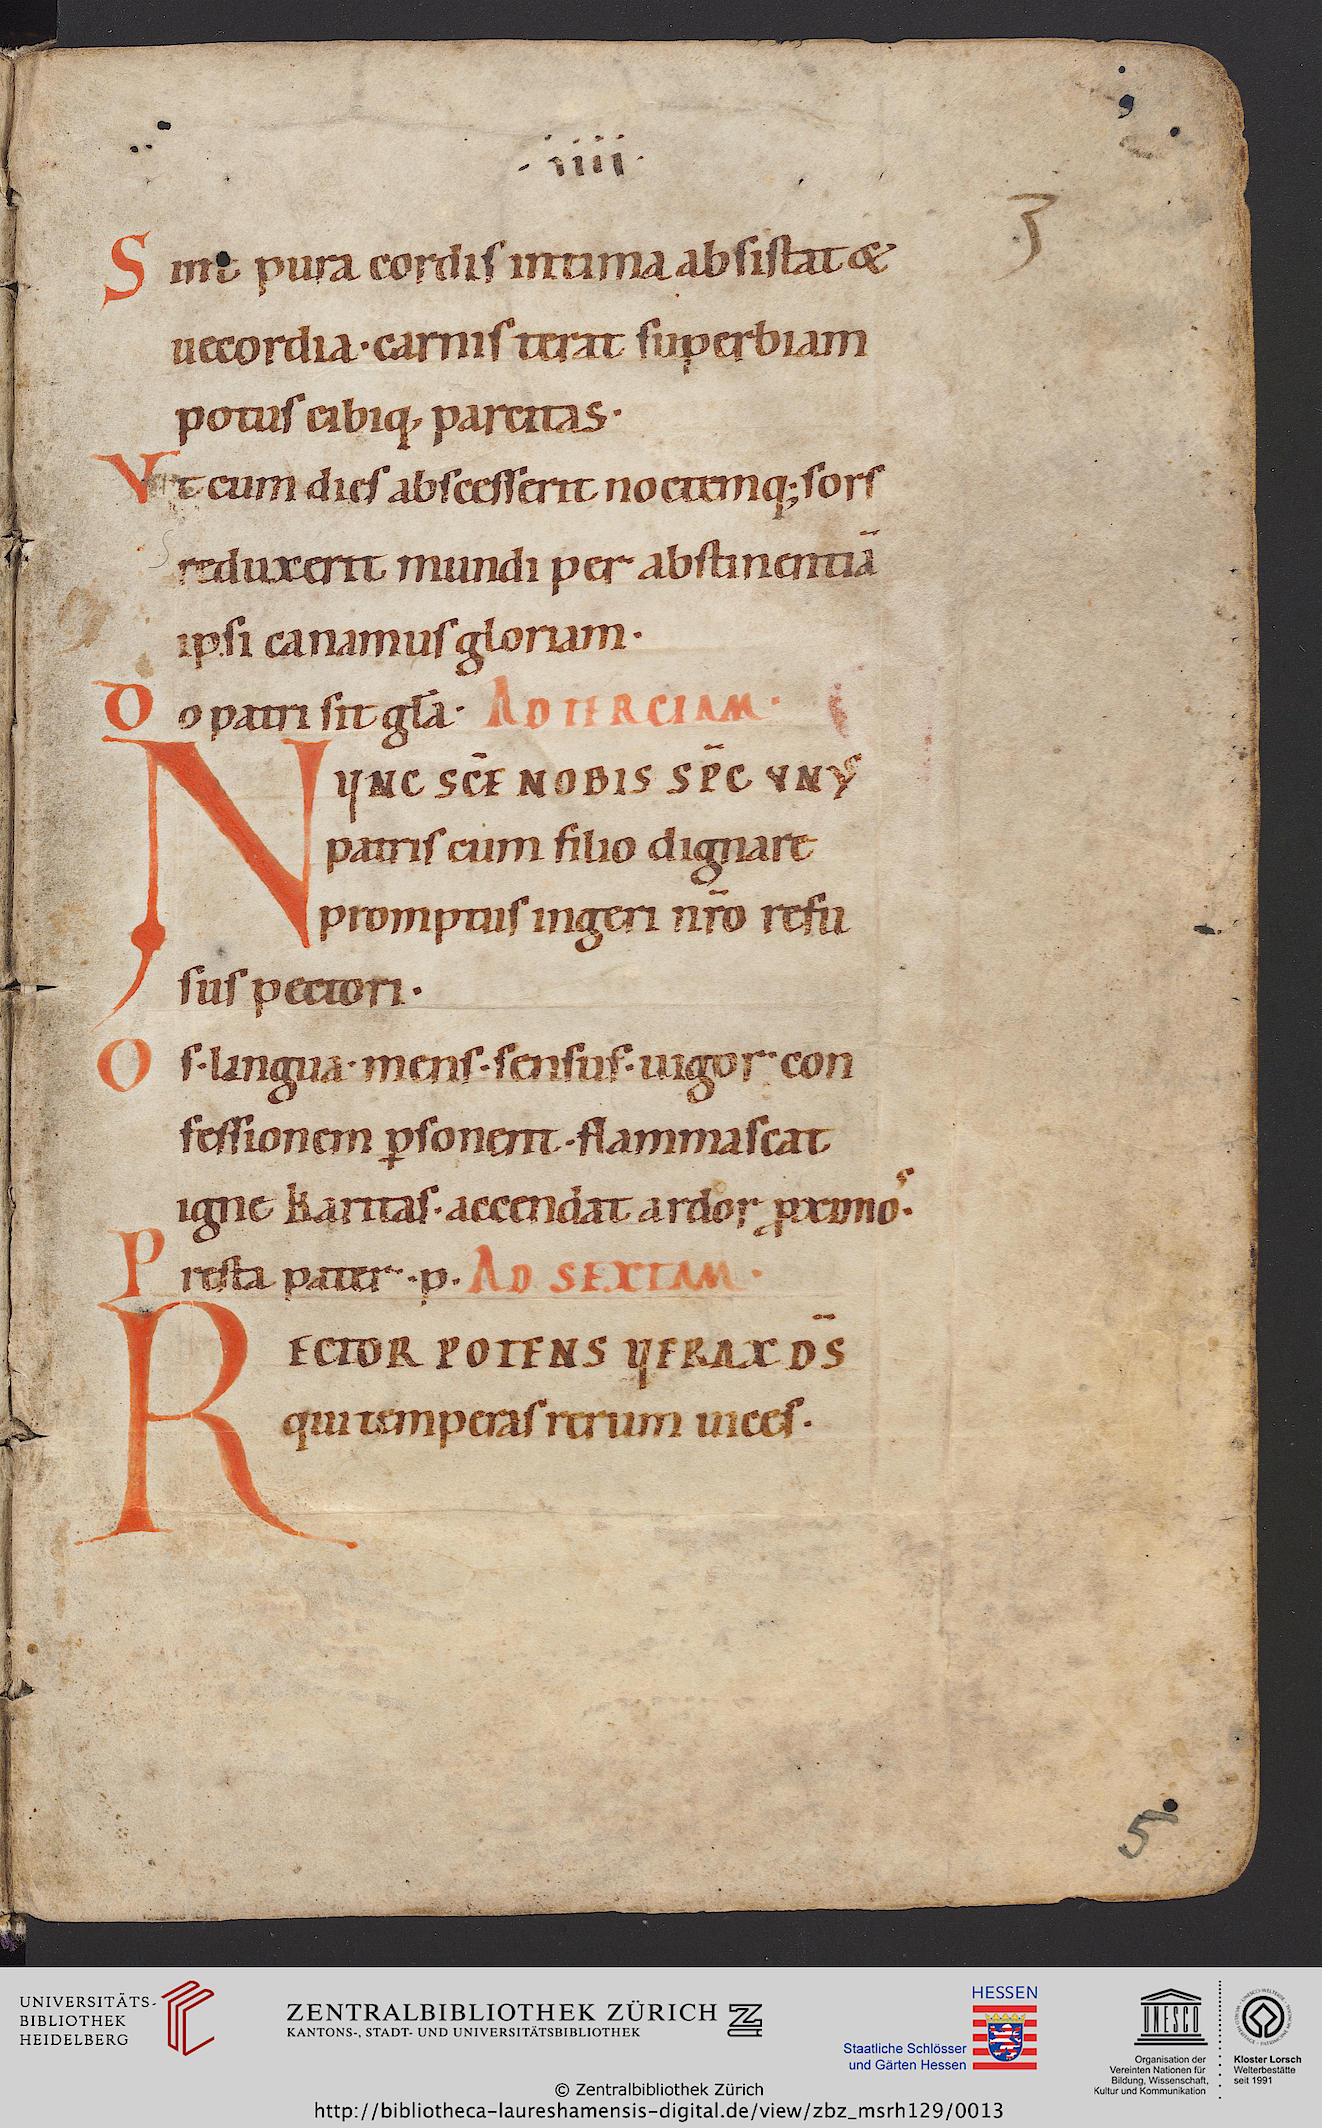 ·iiii·
3
Sint pura cordis intima absistat &
uecordia · carnis terat superbiam
potus cibiq; parcitas ·
Vt cum dies abscesserit noctemq; sors
reduxerit mundi per abstinentiā
ipsi canamus gloriam ·
Do patri sit gl̄a · AD TERCIAM ·
NUNC SC̄E NOBIS SP̄C VNVS
patris cum filio dignare
promptus ingeri nr̄o refu
sus pectori ·
Os · lingua · mens · sensus · uigor · con
fessionem ꝑsonent · flammascat
igne karitas · accendat ardor ꝓximos ·
Presta pater · p · AD SEXTAM ·
RECTOR POTENS UERAX DS̄
qui temperas rerum uices ·
5
UNIVERSITÄTS-
BIBLIOTHEK
HEIDELBERG
ZENTRALBIBLIOTHEK ZÜRICH
KANTONS-, STADT- UND UNIVERSITÄTSBIBLIOTHEK
HESSEN
Staatliche Schlösser
und Gärten Hessen
UNESCO
Organisation der
Vereinten Nationen für
Bildung, Wissenschaft,
Kultur und Kommunikation
Kloster Lorsch
Welterbestätte
seit 1991
© Zentralbibliothek Zürich
http://bibliotheca-laureshamensis-digital.de/view/zbz_msrh129/0013